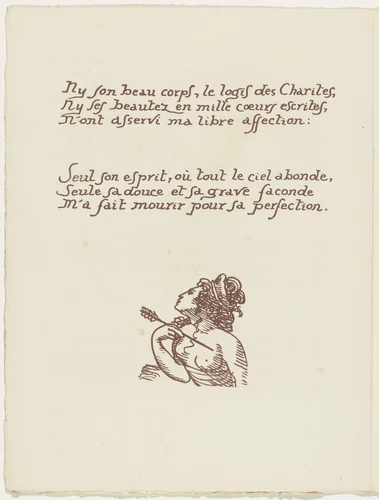 Ny son beau corps, le logis des Charites,
Ny ses beautez en mille cœurs escrites,
N'ont asservi ma libre affection:
Seul son esprit, où tout le ciel abonde,
Seule sa douce et sa grave faconde
M'a fait mourir pour sa perfection.